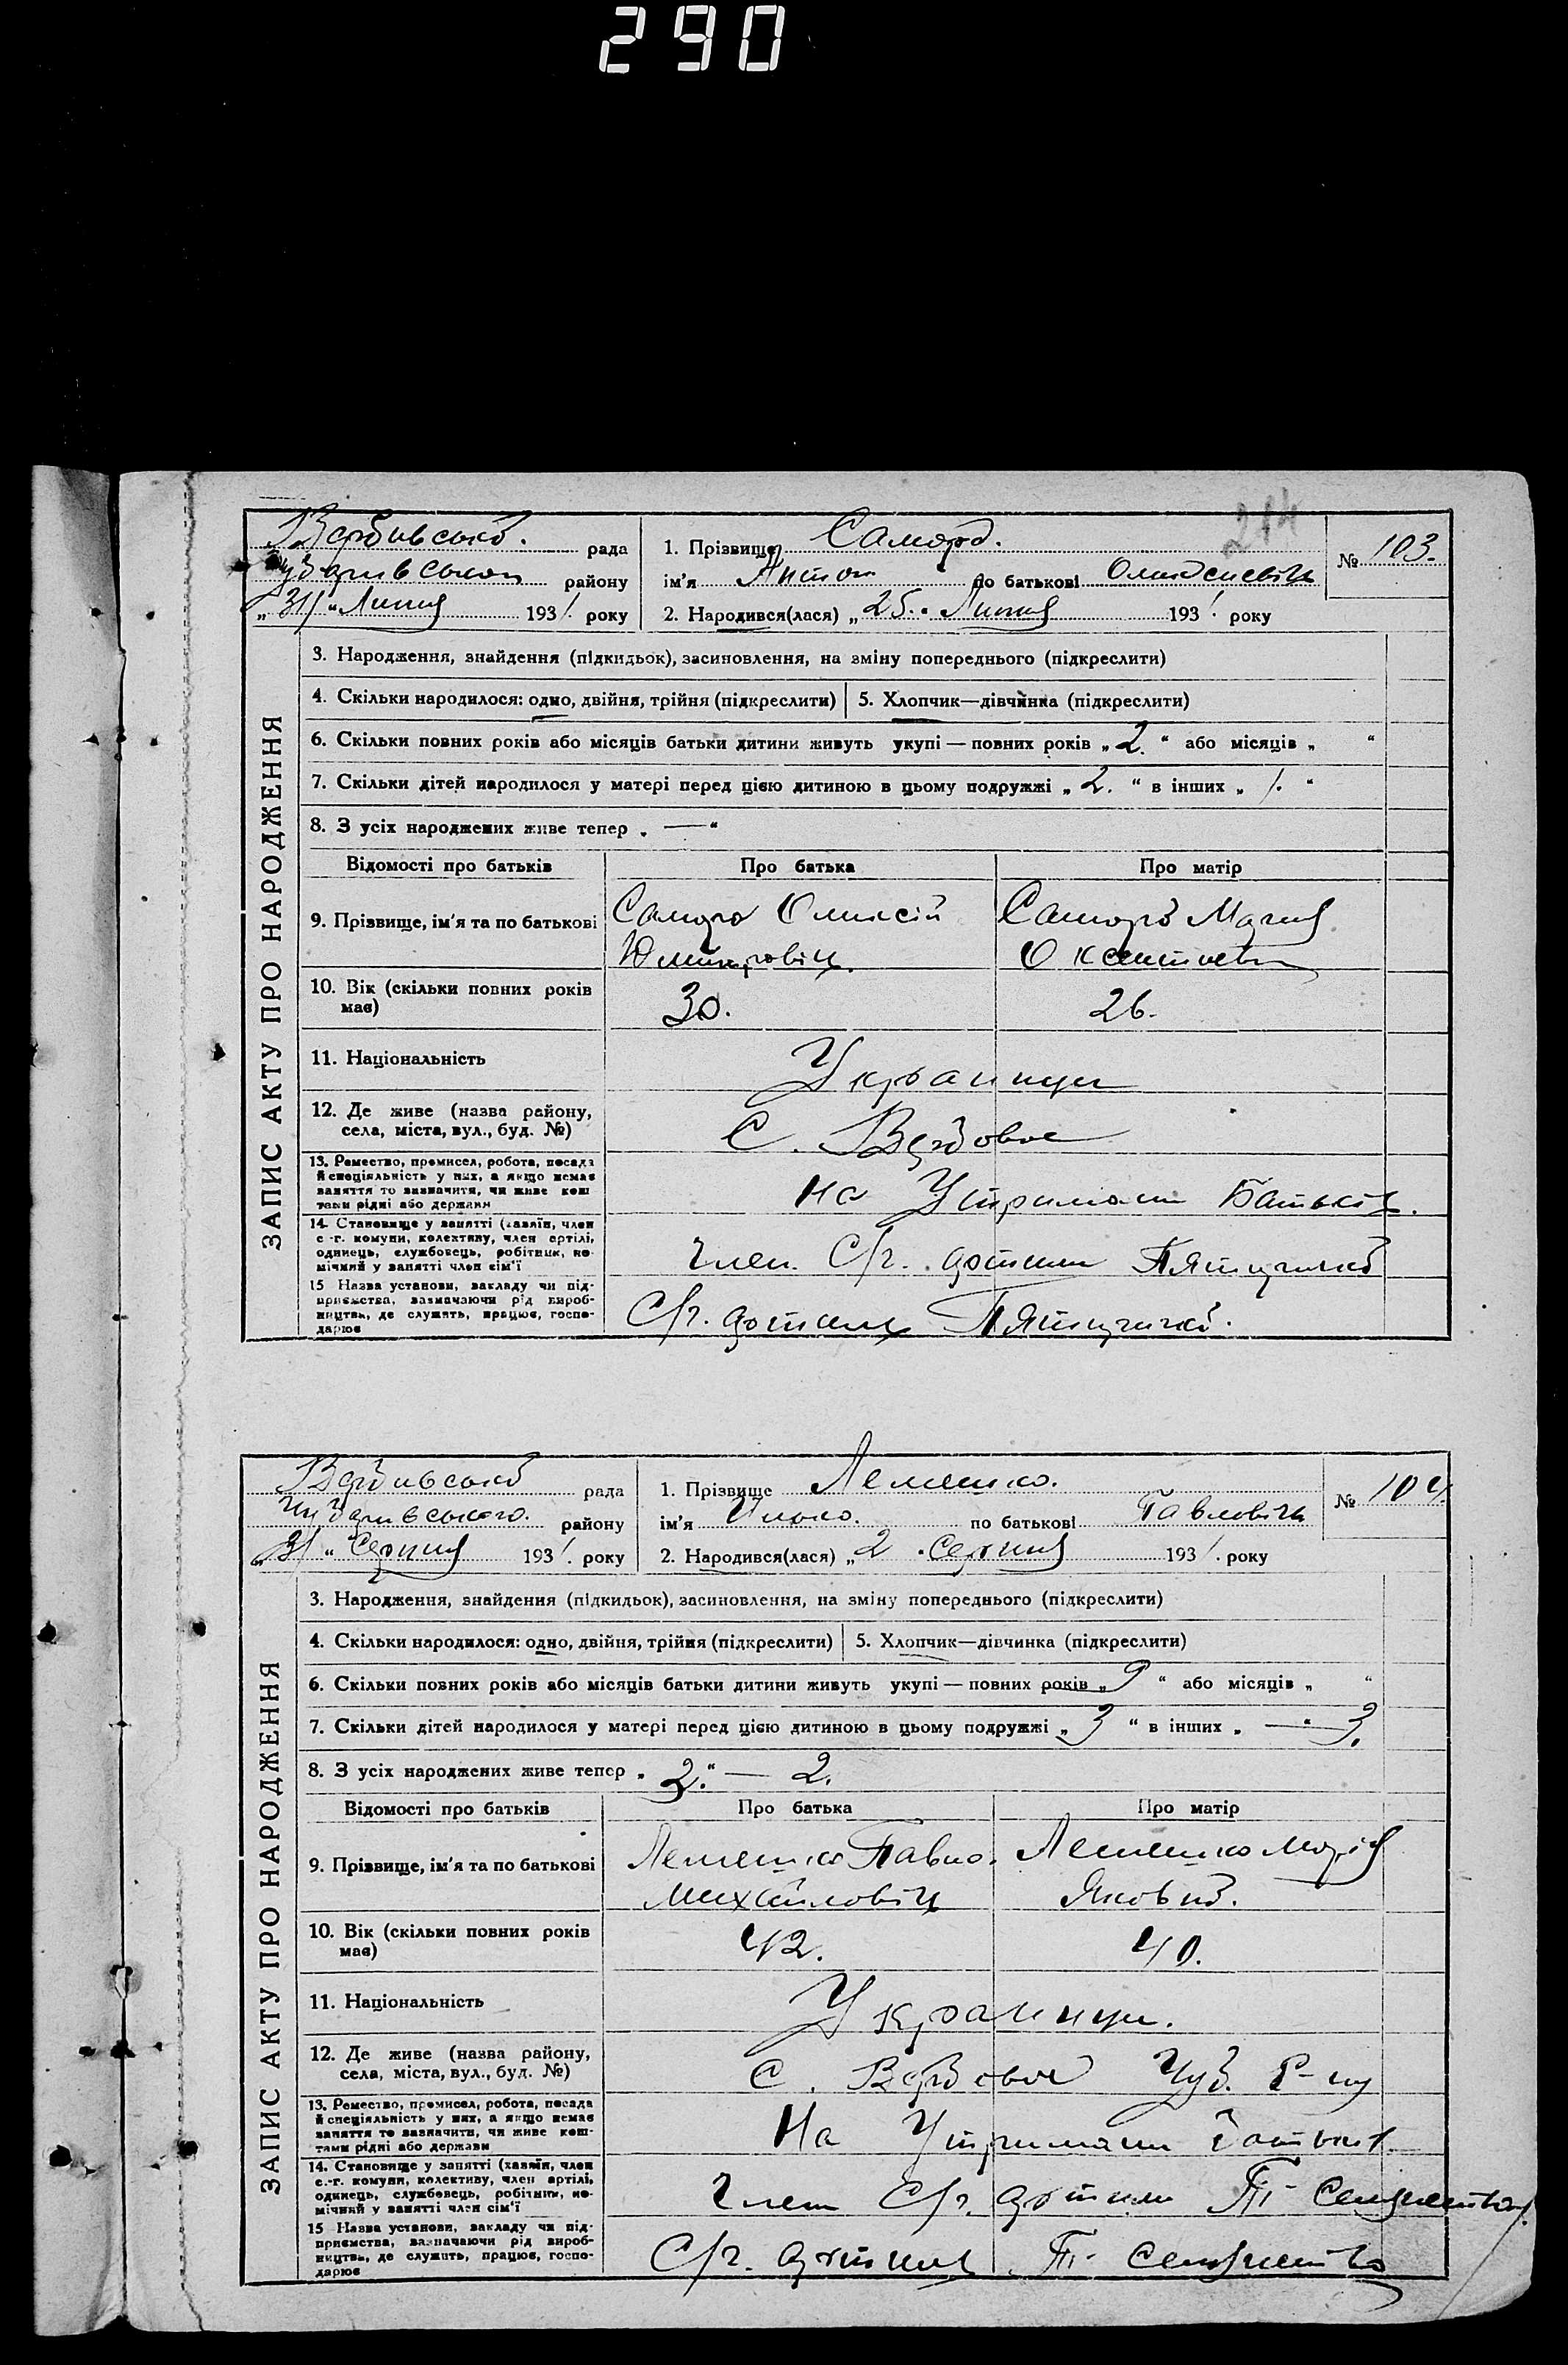 290
214
Вербівська рада
району
„31“ Липня 1931 року
1. Прізвище Саморд.
ім'я Антон по батькові Олексієвіч
2. Народився(лася) „25.“ Липня 1931 року
№ 103.
ЗАПИС АКТУ ПРО НАРОДЖЕННЯ
3. Народження, знайдення (підкидьок), засиновлення, на зміну попереднього (підкреслити)
4. Скільки народилося: одно, двійня, трійня (підкреслити) 5. Хлопчик—дівчинка (підкреслити)
6. Скільки повних років або місяців батьки дитини живуть укупі — повних років „2.“ або місяців „ “
7. Скільки дітей народилося у матері перед цією дитиною в цьому подружжі „2.“ в інших „1.“
8. З усіх народжених живе тепер „—“
Відомості про батьків Про батька Про матір
9. Прізвище, ім'я та по батькові
Олексій
Дмитровіч.
Марія
10. Вік (скільки повних років має)
30. 26.
11. Національність
Украинци
12. Де живе (назва району, села, міста, вул., буд. №)
С. Вербовое
13. Ремество, промисел, робота, посада й спеціяльність у них, а якщо немає заняття то визначити, чи живе коштами рідні або держави
На Утримані Батьків.
14. Становище у занятті (хазяїн, член с.-г. комуни, колективу, член артілі, одинець, службовець, робітник, помічний у занятті член сім'ї
Член С/г. артили Пятирічка
15 Назва установи, закладу чи підприємства, зазначаючи рід виробництва, де служить, працює, господарює
С/г. артиль Пятирічка.
Вербивська рада
Чубаривського району
„31“ Серпня 1931. року
1. Прізвище Лемешко.
ім'я Илько. по батькові Павловіч
2. Народився(лася) „2“ Серпня 1931. року
№ 104.
ЗАПИС АКТУ ПРО НАРОДЖЕННЯ
3. Народження, знайдення (підкидьок), засиновлення, на зміну попереднього (підкреслити)
4. Скільки народилося: одно, двійня, трійня (підкреслити) 5. Хлопчик—дівчинка (підкреслити)
6. Скільки повних років або місяців батьки дитини живуть укупі — повних років „9“ або місяців „ “
7. Скільки дітей народилося у матері перед цією дитиною в цьому подружжі „3“ в інших „—“ 3.
8. З усіх народжених живе тепер „2.“ — 2.
Відомості про батьків Про батька Про матір
9. Прізвище, ім'я та по батькові
Лемешко Павло. Лемешко Марія
Михайловіч Яковна.
10. Вік (скільки повних років має)
42. 40.
11. Національність
Украинци.
12. Де живе (назва району, села, міста, вул., буд. №)
С. Вербовое Чуб. Р-ну
13. Ремество, промисел, робота, посада й спеціяльність у них, а якщо немає заняття то зазначити, чи живе коштами рідні або держави
На Утримани батьків
14. Становище у занятті (хазяїн, член с.-г. комуни, колективу, член артілі, одинець, службовець, робітник, помічний у занятті член сім'ї
Член С/г. артили
15 Назва установи, закладу чи підприємства, вазначаючи рід виробництва, де служить, працює, господарює
С/г. артиль